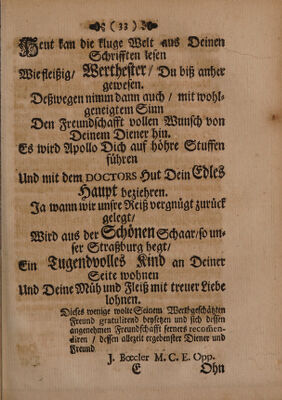 ( 33 )
Heut kan die kluge Welt aus Deinen
Schrifften lesen
Wie fleißig / Werthester / Du biß anher
gewesen.
Deßwegen nimm dann auch / mit wohl-
geneigtem Sinn
Den Freundschafft vollen Wunsch von
Deinem Diener hin.
Es wird Apollo Dich auf höhre Stuffen
führen
Und mit dem DOCTORS Hut Dein Edles
Haupt beziehren.
Ja wann wir unsre Reiß vergnügt zurück
gelegt /
Wird aus der Schönen Schaar / so un-
ser Straßburg hegt /
Ein Tugendvolles Kind an Deiner
Seite wohnen
Und Deine Müh und Fleiß mit treuer Liebe
lohnen.
Dieses wenige wolte Seinem Werthgeschätzten
Freund gratulirend beysetzen und sich dessen
angenehmen Freundschafft ferners recomen-
diren / dessen allezeit ergebenster Diener und
Freund
J. Bœcler M. C. E. Opp.
E Ohn